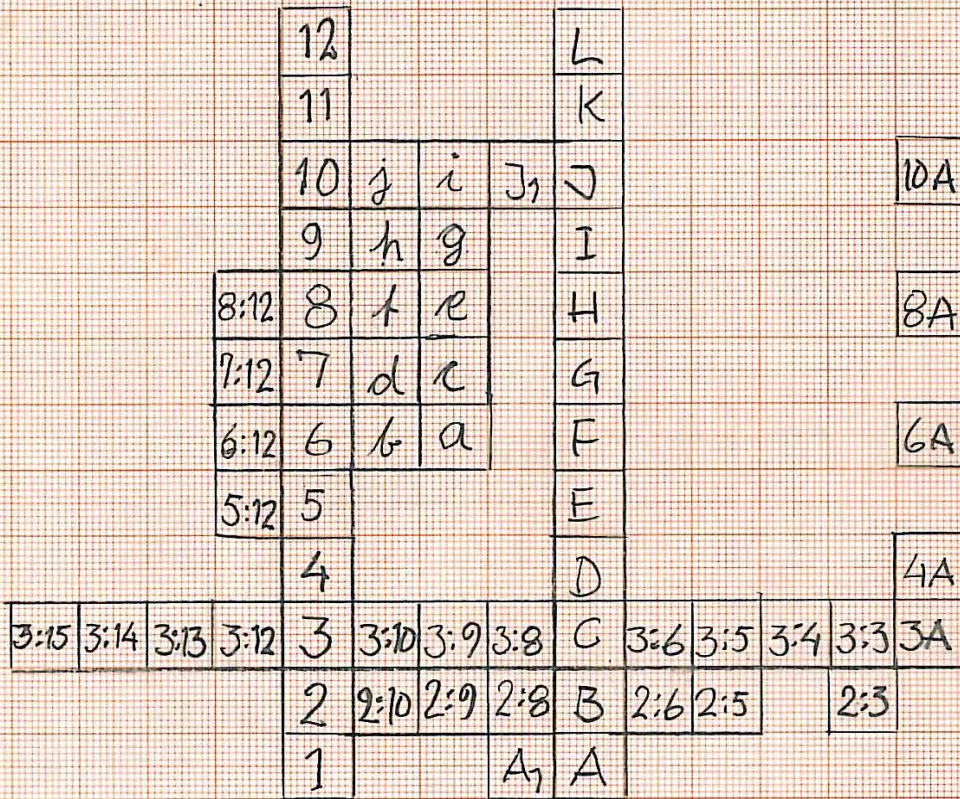 12 L
11 K
10 j i J1 J 10A
9 h g I
8:12 8 f e H 8A
7:12 7 d c G
6:12 6 b a F 6A
5:12 5 E
4 D 4A
3:15 3:14 3:13 3:12 3 3:10 3:9 3:8 C 3:6 3:5 3:4 3:3 3A
2 2:10 2:9 2:8 B 2:6 2:5 2:3
1 A1 A